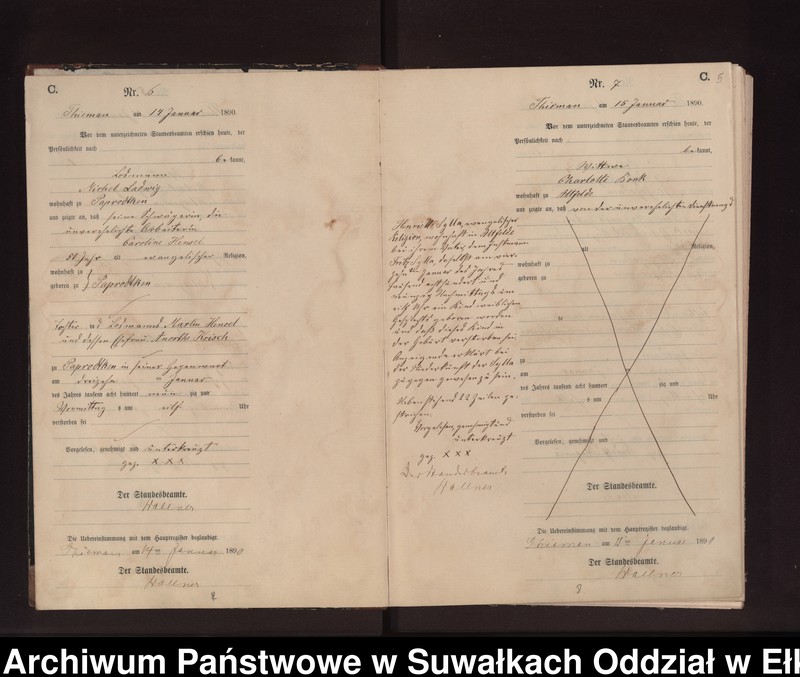 C.
Nr. 6
Thieman am 14 Januar 1890.
Vor dem unterzeichneten Standesbeamten erschien heute, der
Persönlichkeit nach
bekannt,
Losmann
Michel Ladwig
wohnhaft zu Paprodtken
und zeigte an, daß seine Schwägerin, die
unverehelichte Arbeiterin
Caroline Hensel
Jahr alt evangelischer Religion,
wohnhaft zu
geboren zu } Paprodtken
Tochter des Losmanns Martin Hensel
und dessen Ehefrau Anorthe
zu Paprodtken in seiner Gegenwart
am dreizehn ten Januar
des Jahres tausend acht hundert neun zig und
Vormittag s um elf Uhr
verstorben sei
Vorgelesen, genehmigt und unterkreuzt
gez. x x x
Der Standesbeamte.
Hallner
Die Uebereinstimmung mit dem Hauptregister beglaubigt.
Thieman am 14ten Januar 1890
Der Standesbeamte.
Hallner
C. 5
Nr. 7
Thieman am 15 Januar 1890.
Vor dem unterzeichneten Standesbeamten erschien heute, der
Persönlichkeit nach
bekannt,
Wittwe
Charlotte Bonk
wohnhaft zu Ullfelde
und zeigte an, daß von der unverehelichten Dienstmagd
alt Religion,
wohnhaft zu
geboren zu
zu
zu
am
des Jahres tausend acht hundert zig und
s um Uhr
verstorben sei
Vorgelesen, genehmigt und
Henriette Sylla, evangelischer
Religion, wohnhaft in Ullfelde
bei ihrem Vater dem
Fritz Sylla, daselbst am vier
zehnten Januar des Jahres
tausend achthundert und
neunzig Nachmittags um
Uhr ein Kind weiblichen
Geschlechts geboren worden
und daß dieses Kind in
der Geburt verstorben sei.
Anzeigende erklärt bei
der Niederkunft der Sylla
zugegen gewesen zu sein.
Nebenstehend 22 Zeilen ge-
strichen.
Vorgelesen, genehmigt und
unterkreuzt
gez. x x x
Der Standesbeamte
Hallner
Der Standesbeamte.
Die Uebereinstimmung mit dem Hauptregister beglaubigt.
Thieman am 15ten Januar 1890
Der Standesbeamte.
Hallner
Archiwum Państwowe w Suwałkach Oddział w Ełk